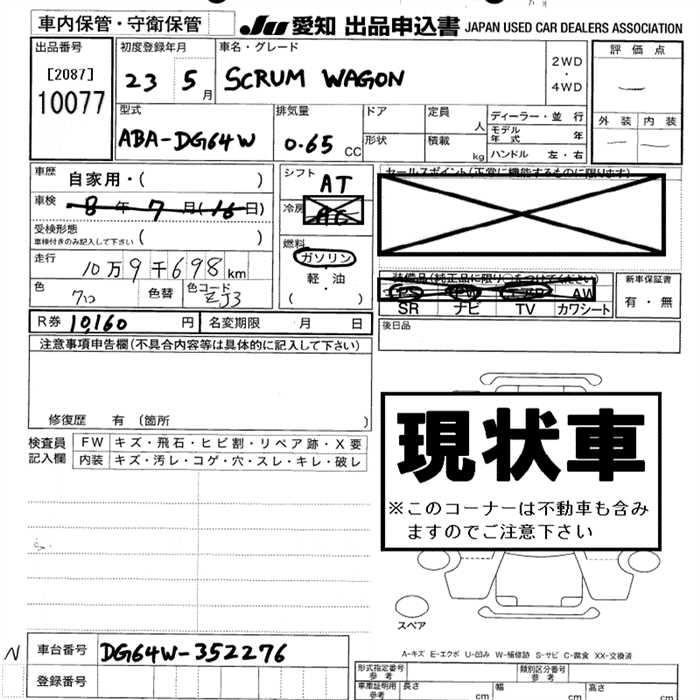 車内保管・守衛保管
JU 愛知 出品申込書 JAPAN USED CAR DEALERS ASSOCIATION
出品番号
[2087]
10077
初度登録年月
23 5月
車名・グレード
SCRUM WAGON
2WD
・
4WD
評価点
外装 内装
型式
ABA-DG64W
排気量
0.65 CC
ドア
形状
定員 人
積載 kg
ディーラー・並行
モデル年式 年
ハンドル 左・右
車歴 自家用・( )
車検 8年7月(16日)
受検形態
車検付きのみ記入して下さい ( )
走行 10万9千698km
色
色替
色コード ZJ3
シフト AT
冷房 AC
燃料
ガソリン
軽・油
( )
セールスポイント(正常に機能するものに限ります)
装備品(純正品に限り○をつけてください)
AW
SR ナビ TV カワシート
新車保証書
有・無
後日品
R券 10,160円
名変期限 月 日
注意事項申告欄(不具合内容等は具体的に記入して下さい)
修復歴 有 (箇所 )
検査員記入欄
FW キズ・飛石・ヒビ割・リペア跡・X要
内装 キズ・汚レ・コゲ・穴・スレ・キレ・破レ
現状車
※このコーナーは不動車も含み
ますのでご注意下さい
スペア
A-キズ E-エクボ U-凹み W-補修跡 S-サビ C-腐食 XX-交換済
N
車台番号 DG64W-352276
登録番号
形式指定番号 参考
類別区分番号 参考
車庫証明用 参考
長さ cm
幅 cm
高さ cm